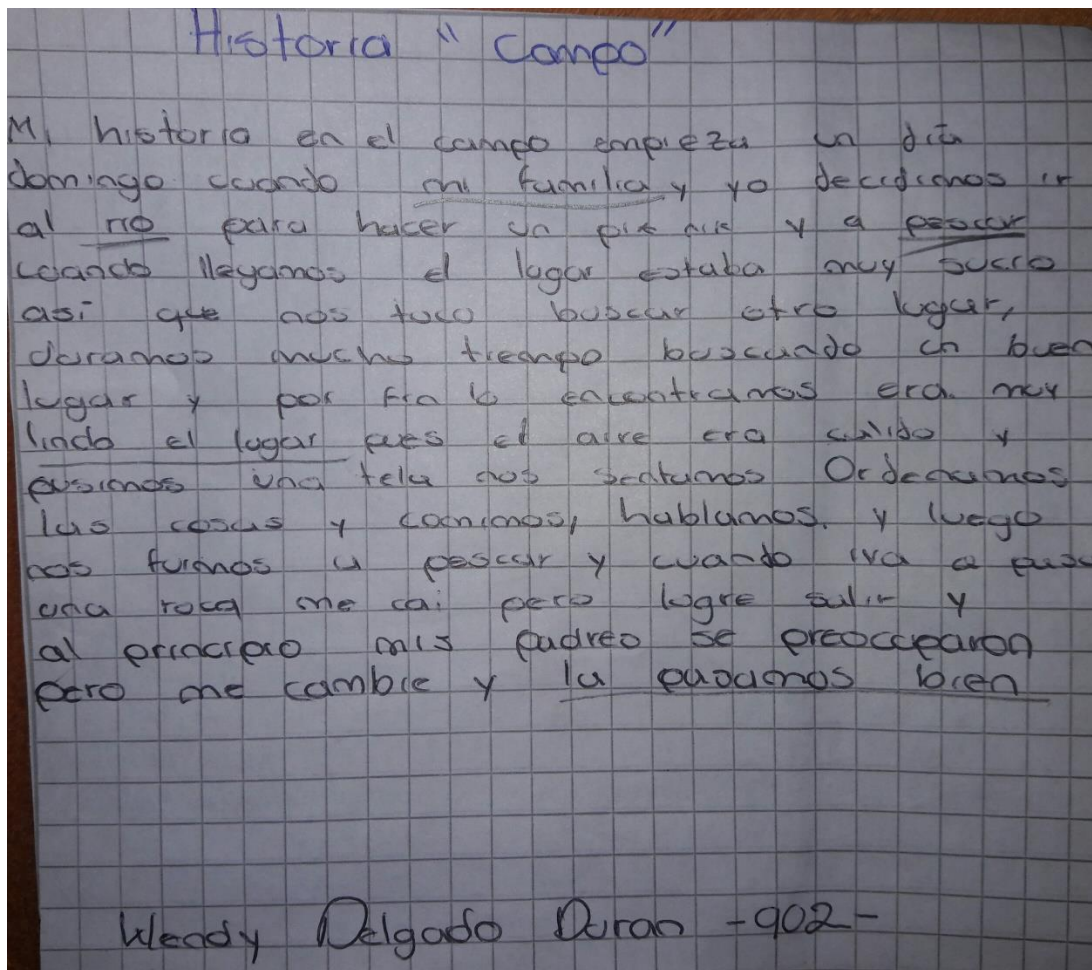 Historia "Campo"
Mi historia en el campo empieza un dia
domingo cuando mi familia y yo decidimos ir
al rio para hacer un pik nik y a pescar
cuando llegamos el lugar estaba muy sucio
asi que nos toco buscar otro lugar,
duramos mucho tiempo buscando un buen
lugar y por fin lo encontramos era muy
lindo el lugar pues el aire era calido y
pusimos una tela nos sentamos Ordenamos
las cosas y comimos, hablamos. y luego
nos fuimos a pescar y cuando iva a
una roca me cai pero logre salir y
al principio mis padres se preocuparon
pero me cambie y la pasamos bien
Wendy Delgado Duran -902-